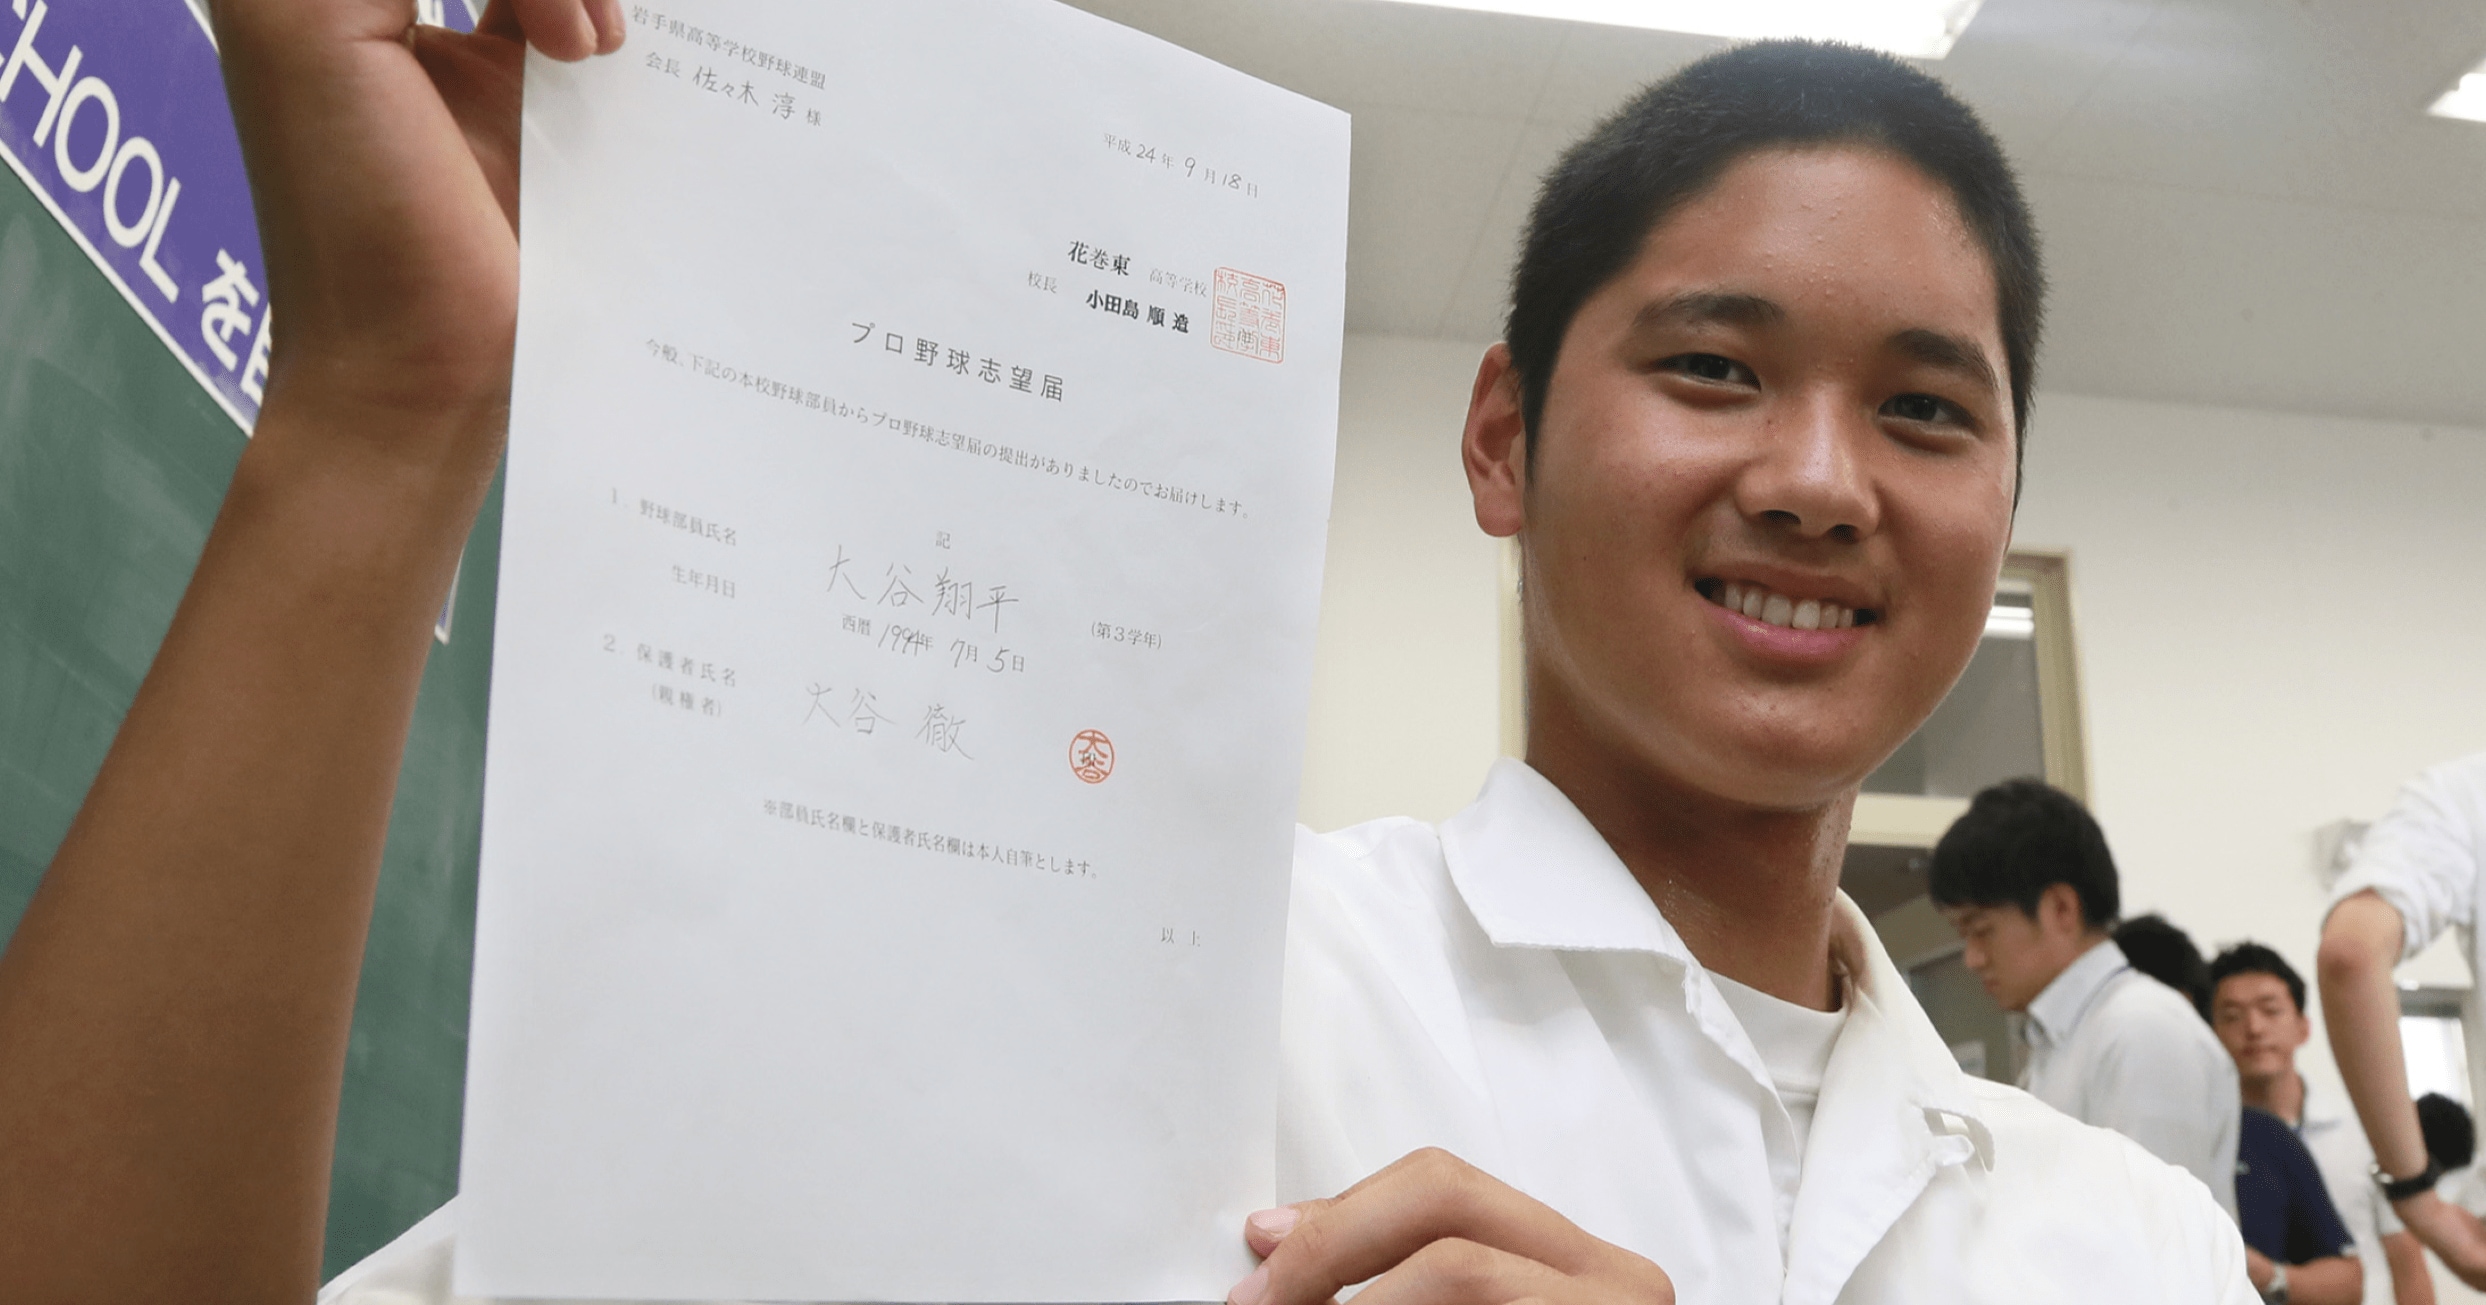 CHOOL を目
岩手県高等学校野球連盟
会長 佐々木 淳 様
平成 24 年 9 月 18 日
花巻東 高等学校
校長 小田島 順造
プロ野球志望届
今般、下記の本校野球部員からプロ野球志望届の提出がありましたのでお届けします。
記
1. 野球部員氏名 大谷翔平 (第3学年)
生年月日 西暦 1994年 7月 5日
2. 保護者氏名 大谷 徹
(親権者)
大谷
※部員氏名欄と保護者氏名欄は本人自筆とします。
以 上